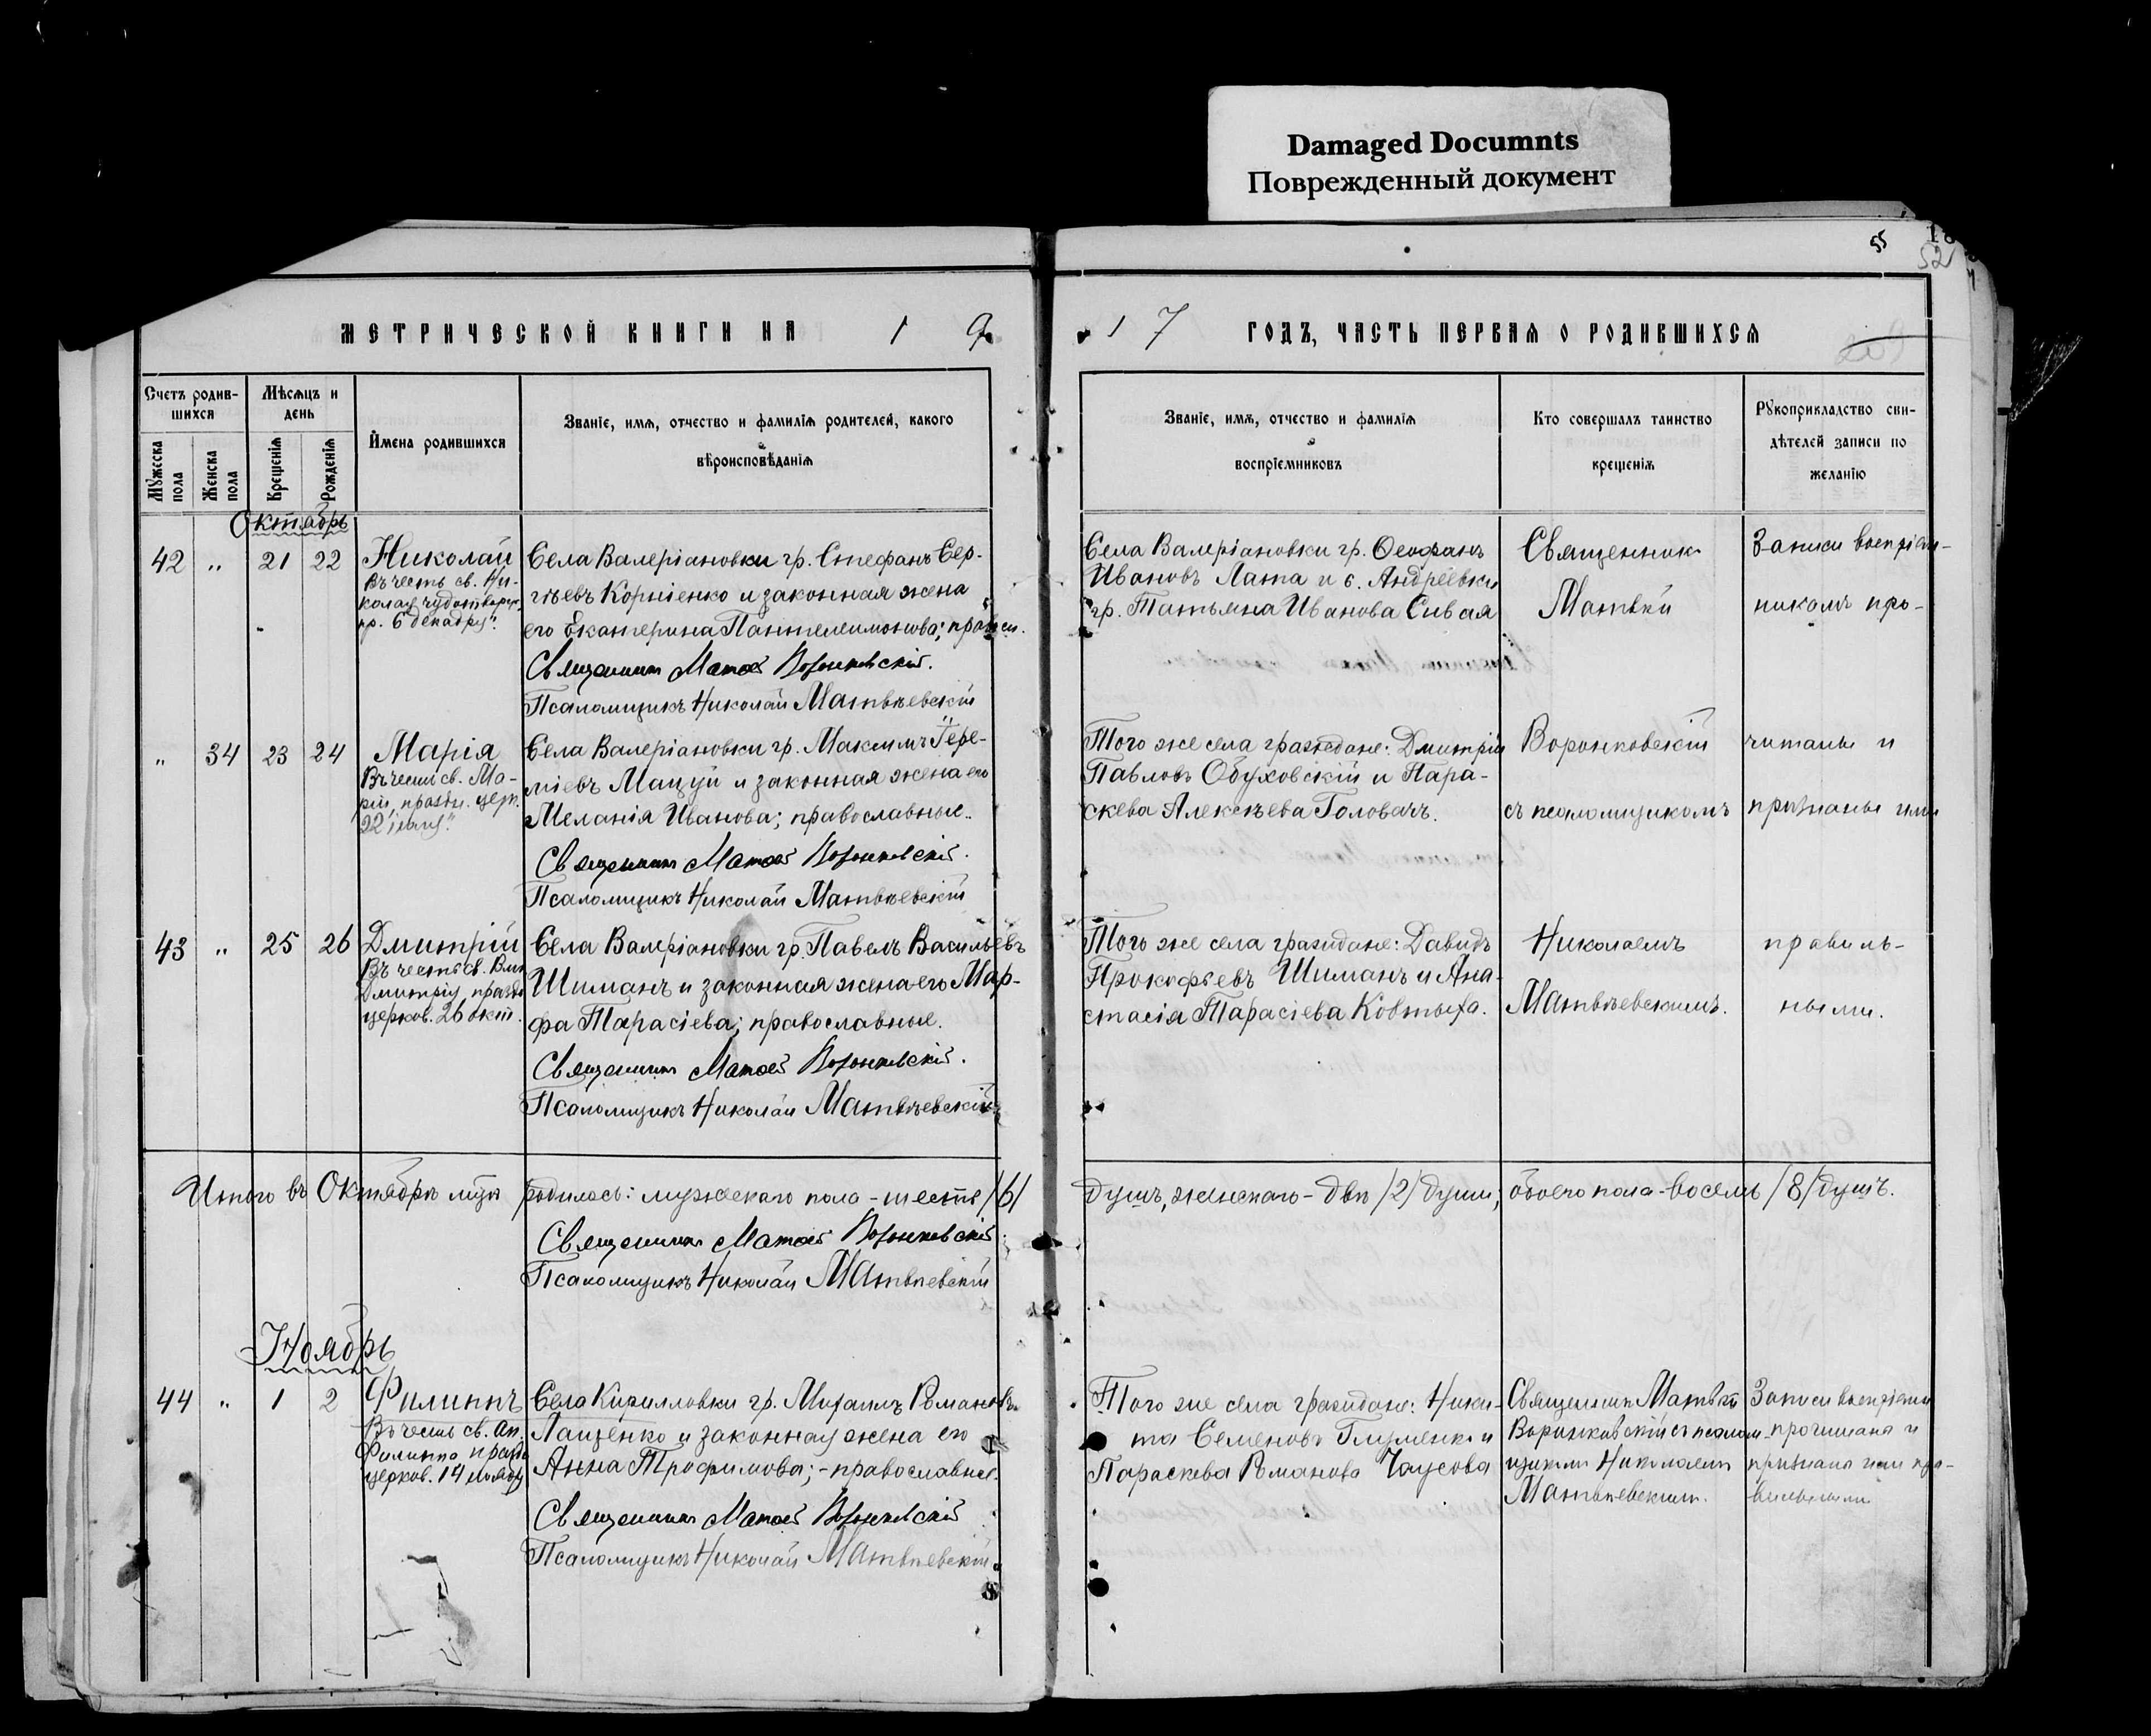 Damaged Documnts
Поврежденный документ
55
52
МЕТРИЧЕСКОЙ КНИГИ НА 1 9
1 7 ГОДЪ, ЧАСТЬ ПЕРВАЯ О РОДИВШИХСЯ
Счетъ родив-
шихся
Мужеска пола
Женска пола
Мѣсяцъ и
день
Крещенія
Рожденія
Имена родившихся
Званіе, имя, отчество и фамилія родителей, какого
вѣроисповѣданія
Званіе, имя, отчество и фамилія
воспріемниковъ
Кто совершалъ таинство
крещенія
Рукоприкладство сви-
дѣтелей записи по
желанію
Октябрь
42 " 21 22
Николай
Въ честь св. Ни-
колая чудотворца,
пр. 6 декабря".
Села Валеріановки гр. Стефанъ Сер-
гѣевъ Корніенко и законная жена
его Екатерина Пантелеимонова;
Священникъ Матѳей Воронковскій.
Псаломщикъ Николай Матвѣевскій
Села Валеріановки гр. Ѳеофанъ
Ивановъ Лата и с. Андреевки
гр. Татьяна Иванова Сивая
Священникъ
Матвѣй
Записи воспріем-
никомъ про-
" 34 23 24
Марія
Въ честь св. Ма-
ріи, праздн. церк.
22 іюля".
Села Валеріановки гр. Максимъ Іере-
міевъ Мацуй и законная жена его
Меланія Иванова; православные.
Священникъ Матѳей Воронковскій.
Псаломщикъ Николай Матвѣевскій
Того же села граждане: Дмитрій
Павловъ Обуховскій и Пара-
скева Алексѣева Головачъ.
Воронковскій
съ псаломщикомъ
читаны и
признаны ими
43 " 25 26
Дмитрій
Въ честь св. Влм
Дмитрія, праздн
церков. 26 окт.
Села Валеріановки гр. Павелъ Васильевъ
Шиманъ и законная жена его Мар-
фа Тарасіева; православные.
Священникъ Матѳей Воронковскій.
Псаломщикъ Николай Матвѣевскій
Того же села граждане: Давидъ
Прокофьевъ Шиманъ и Ана-
стасія Тарасіева Ковтыха.
Николаемъ
Матвѣевскимъ.
правиль-
ными.
Итого въ Октябрѣ мцѣ родилось: мужескаго пола - шесть /6/
душъ, женскаго - двѣ /2/ души, обоего пола - восемь /8/ душъ.
Священникъ Матѳей Воронковскій
Псаломщикъ Николай Матвѣевскій
Ноябрь
44 " 1 2
Филиппъ
Въ честь св. ап.
Филиппа праздн
церков. 14 ноября
Села Кирилловки гр. Михаилъ Романовъ
Лащенко и законная жена его
Анна Трофимова; - православные.
Священникъ Матѳей Воронковскій
Псаломщикъ Николай Матвѣевскій
Того же села граждане: Ники-
та Семеновъ Глуменко и
Параскева Романова Чаусова
Священникъ Матвѣй
Воронковскій съ псалом-
щикомъ Николаемъ
Матвѣевскимъ.
Записи воспріемн
прочитана и
признана ими пра-
вильными